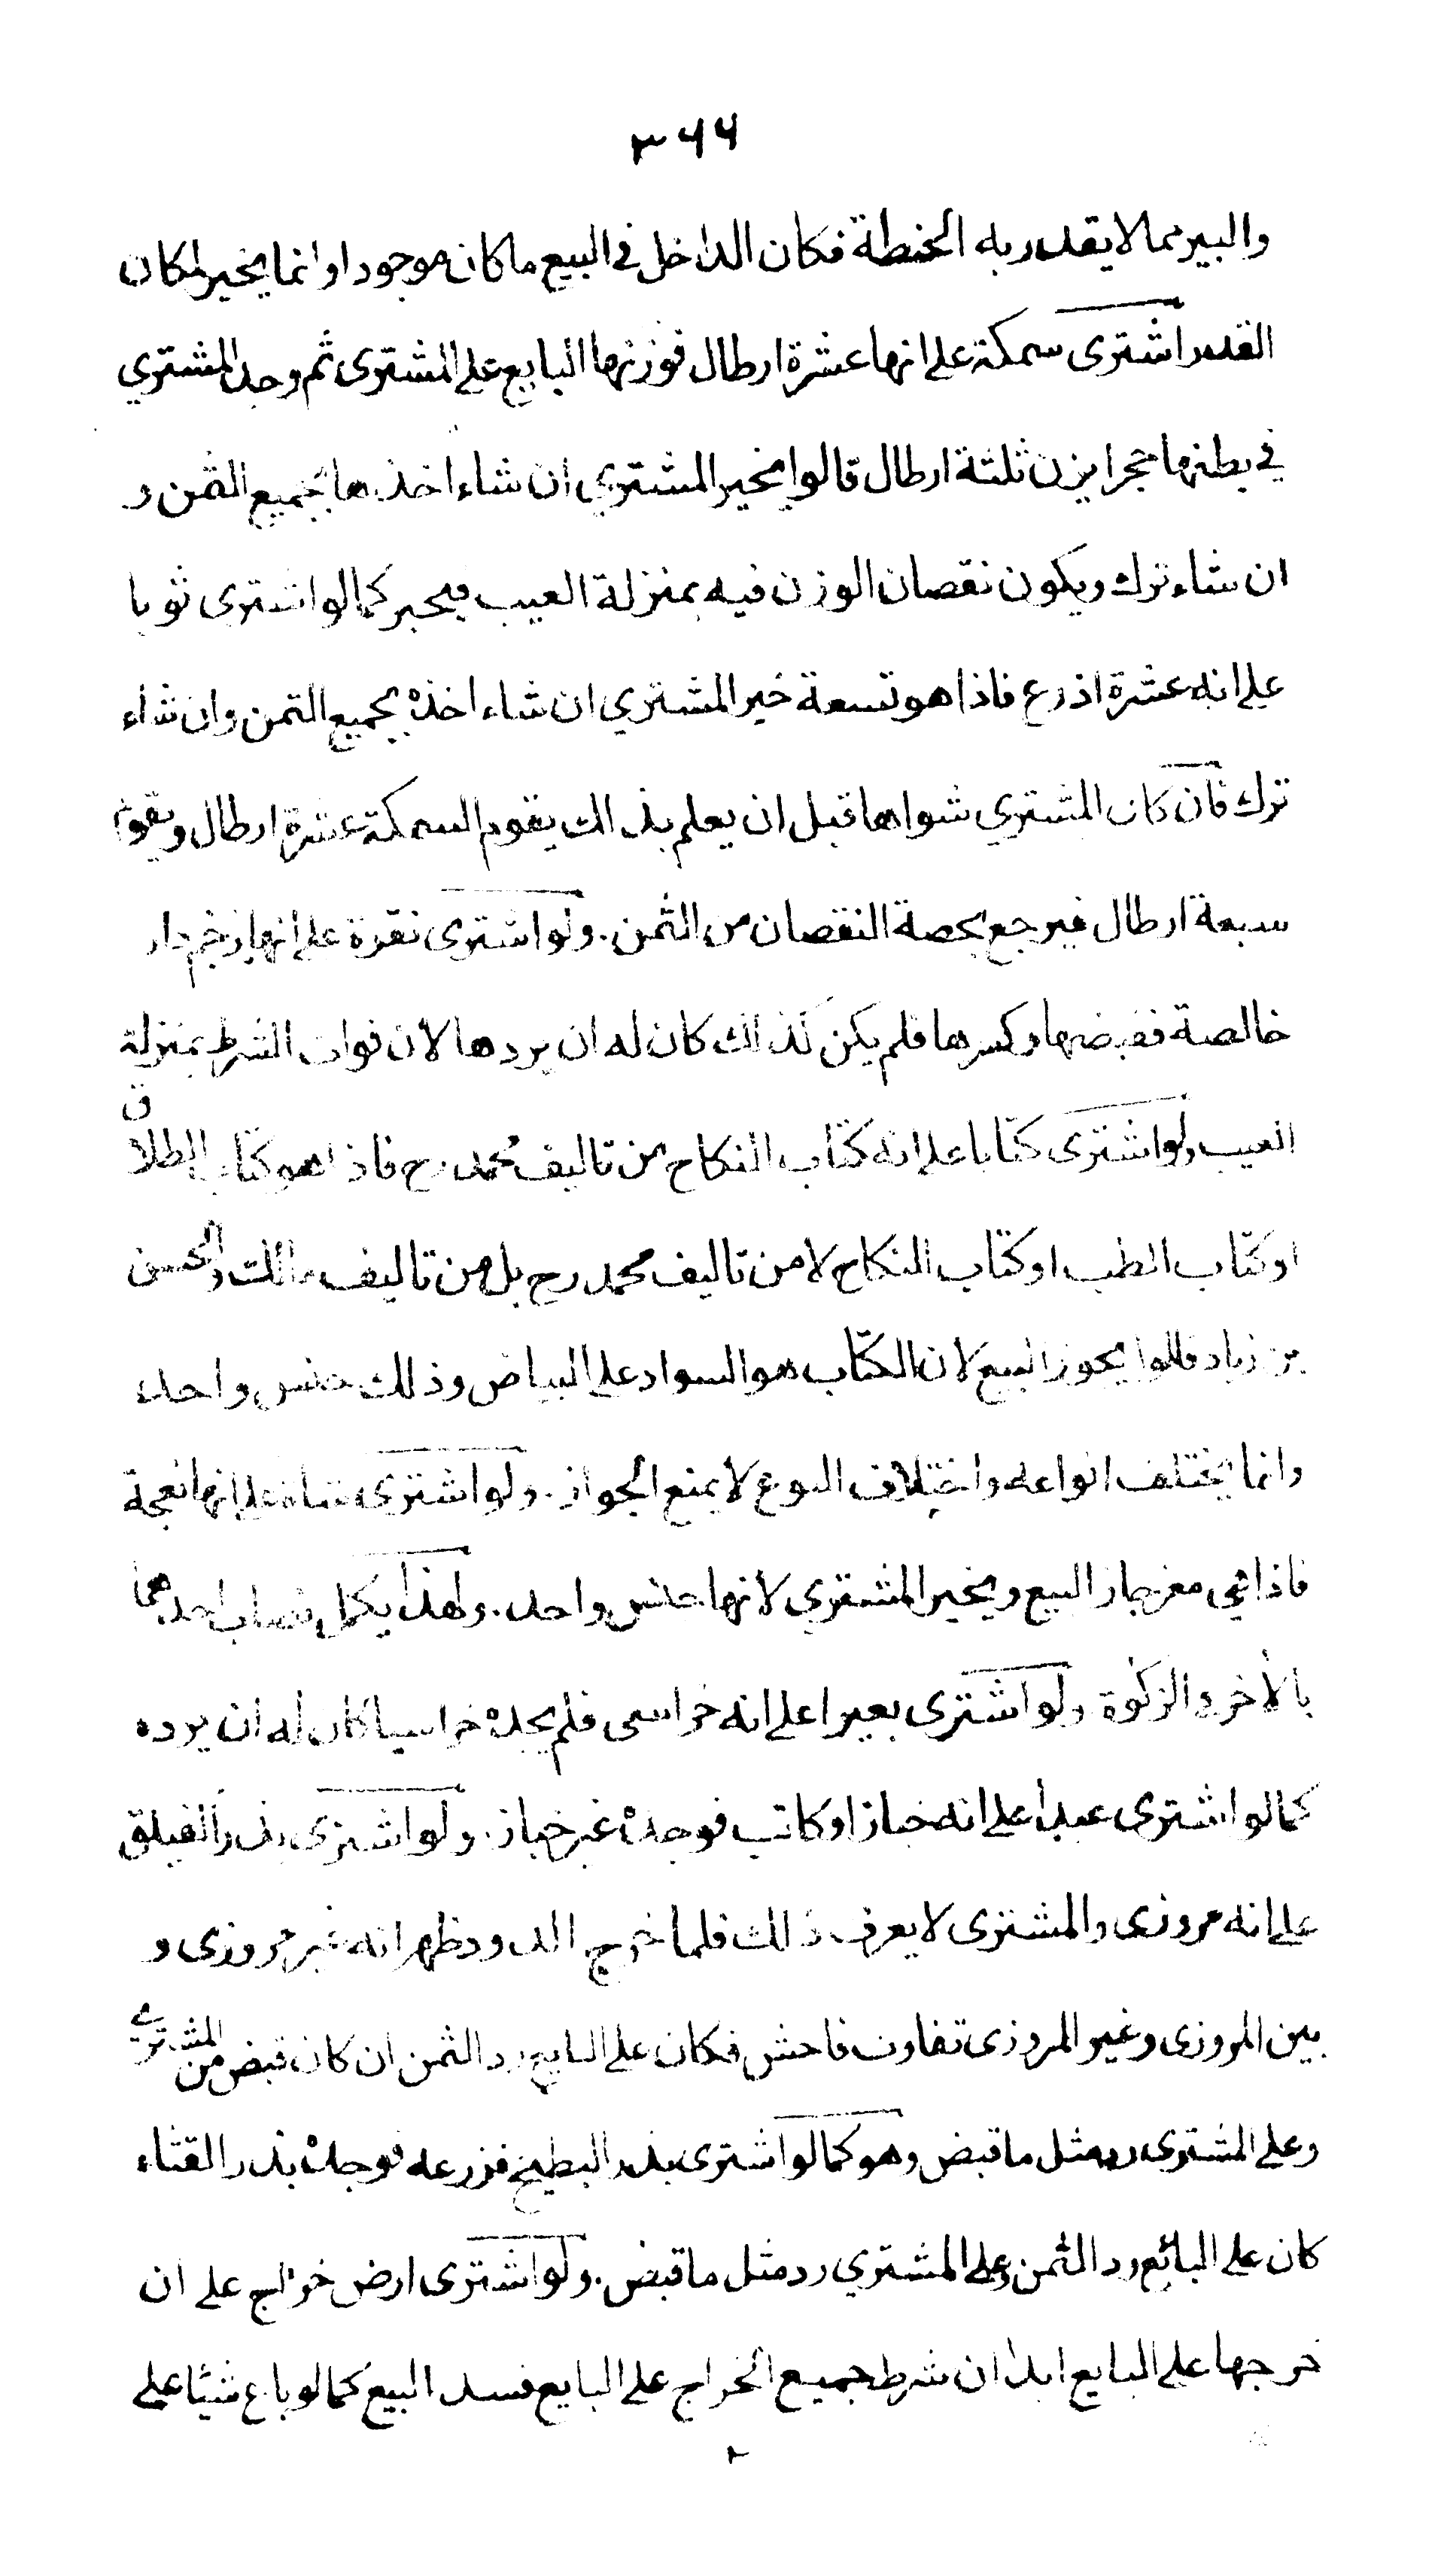 ٣٦٦
والبير مما لا يقدر به الحنطة فكان الداخل في البيع ما كان موجودا وانما يخير لمكان
الغدر اشترى سمكة على انها عشرة ارطال فوزنها البايع على المشترى ثم وجد المشتري
في بطنها حجرا يزن ثلثة ارطال قالوا يخير المشتري ان شاء اخذها بجميع الثمن و
ان شاء ترك ويكون نقصان الوزن فيه بمنزلة العيب فيخير كما لو اشترى ثوبا
على انه عشرة اذرع فاذا هو تسعة خير المشتري ان شاء اخذه بجميع الثمن وان شاء
ترك فان كان المشتري شواها قبل ان يعلم بذالك يقوم السمكة عشرة ارطال ويقوم
سبعة ارطال فيرجع بحصة النقصان من الثمن . ولو اشترى نقرة على انها زخم دار
خالصة فقبضها وكسرها فلم يكن كذالك كان له ان يردها لان فوات الشرط بمنزلة
العيب ولو اشترى كتابا على انه كتاب النكاح من تاليف محمد رح فاذا هو كتاب الطلاق
او كتاب الطب او كتاب النكاح لا من تاليف محمد رح بل من تاليف مالك والحسن
بن زياد قالوا يجوز البيع لان الكتاب هو السواد على البياض وذلك جنس واحد
وانما يختلف انواعه واختلاف النوع لا يمنع الجواز . ولو اشترى شاة على انها نعجة
فاذا هي معز جاز البيع ويخير المشترى لانها جنس واحد . ولهذا يكمل نصاب احدهما
بالأخر في الزكوة ولو اشترى بعيرا على انه خراسى فلم يجده خراسيا كان له ان يرده
كما لو اشترى عبدا على انه خباز او كاتب فوجده غير خباز . ولو اشترى بذر الفيلق
على انه مروزى والمشترى لا يعرف ذالك فلما خرج الدود ظهر انه غير مروزى و
بين المروزى وغير المروزى تفاوت فاحش فكان على البايع رد الثمن ان كان قبض من المشتري
وعلى المشترى رد مثل ما قبض وهو كما لو اشترى بذر البطيخ فزرعه فوجده بذر القثاء
كان على البائع رد الثمن وعلى المشتري رد مثل ما قبض . ولو اشترى ارض خراج على ان
خرجها على البايع ابدا ان شرط جميع الخراج على البايع فسد البيع كما لو باع شيئا على